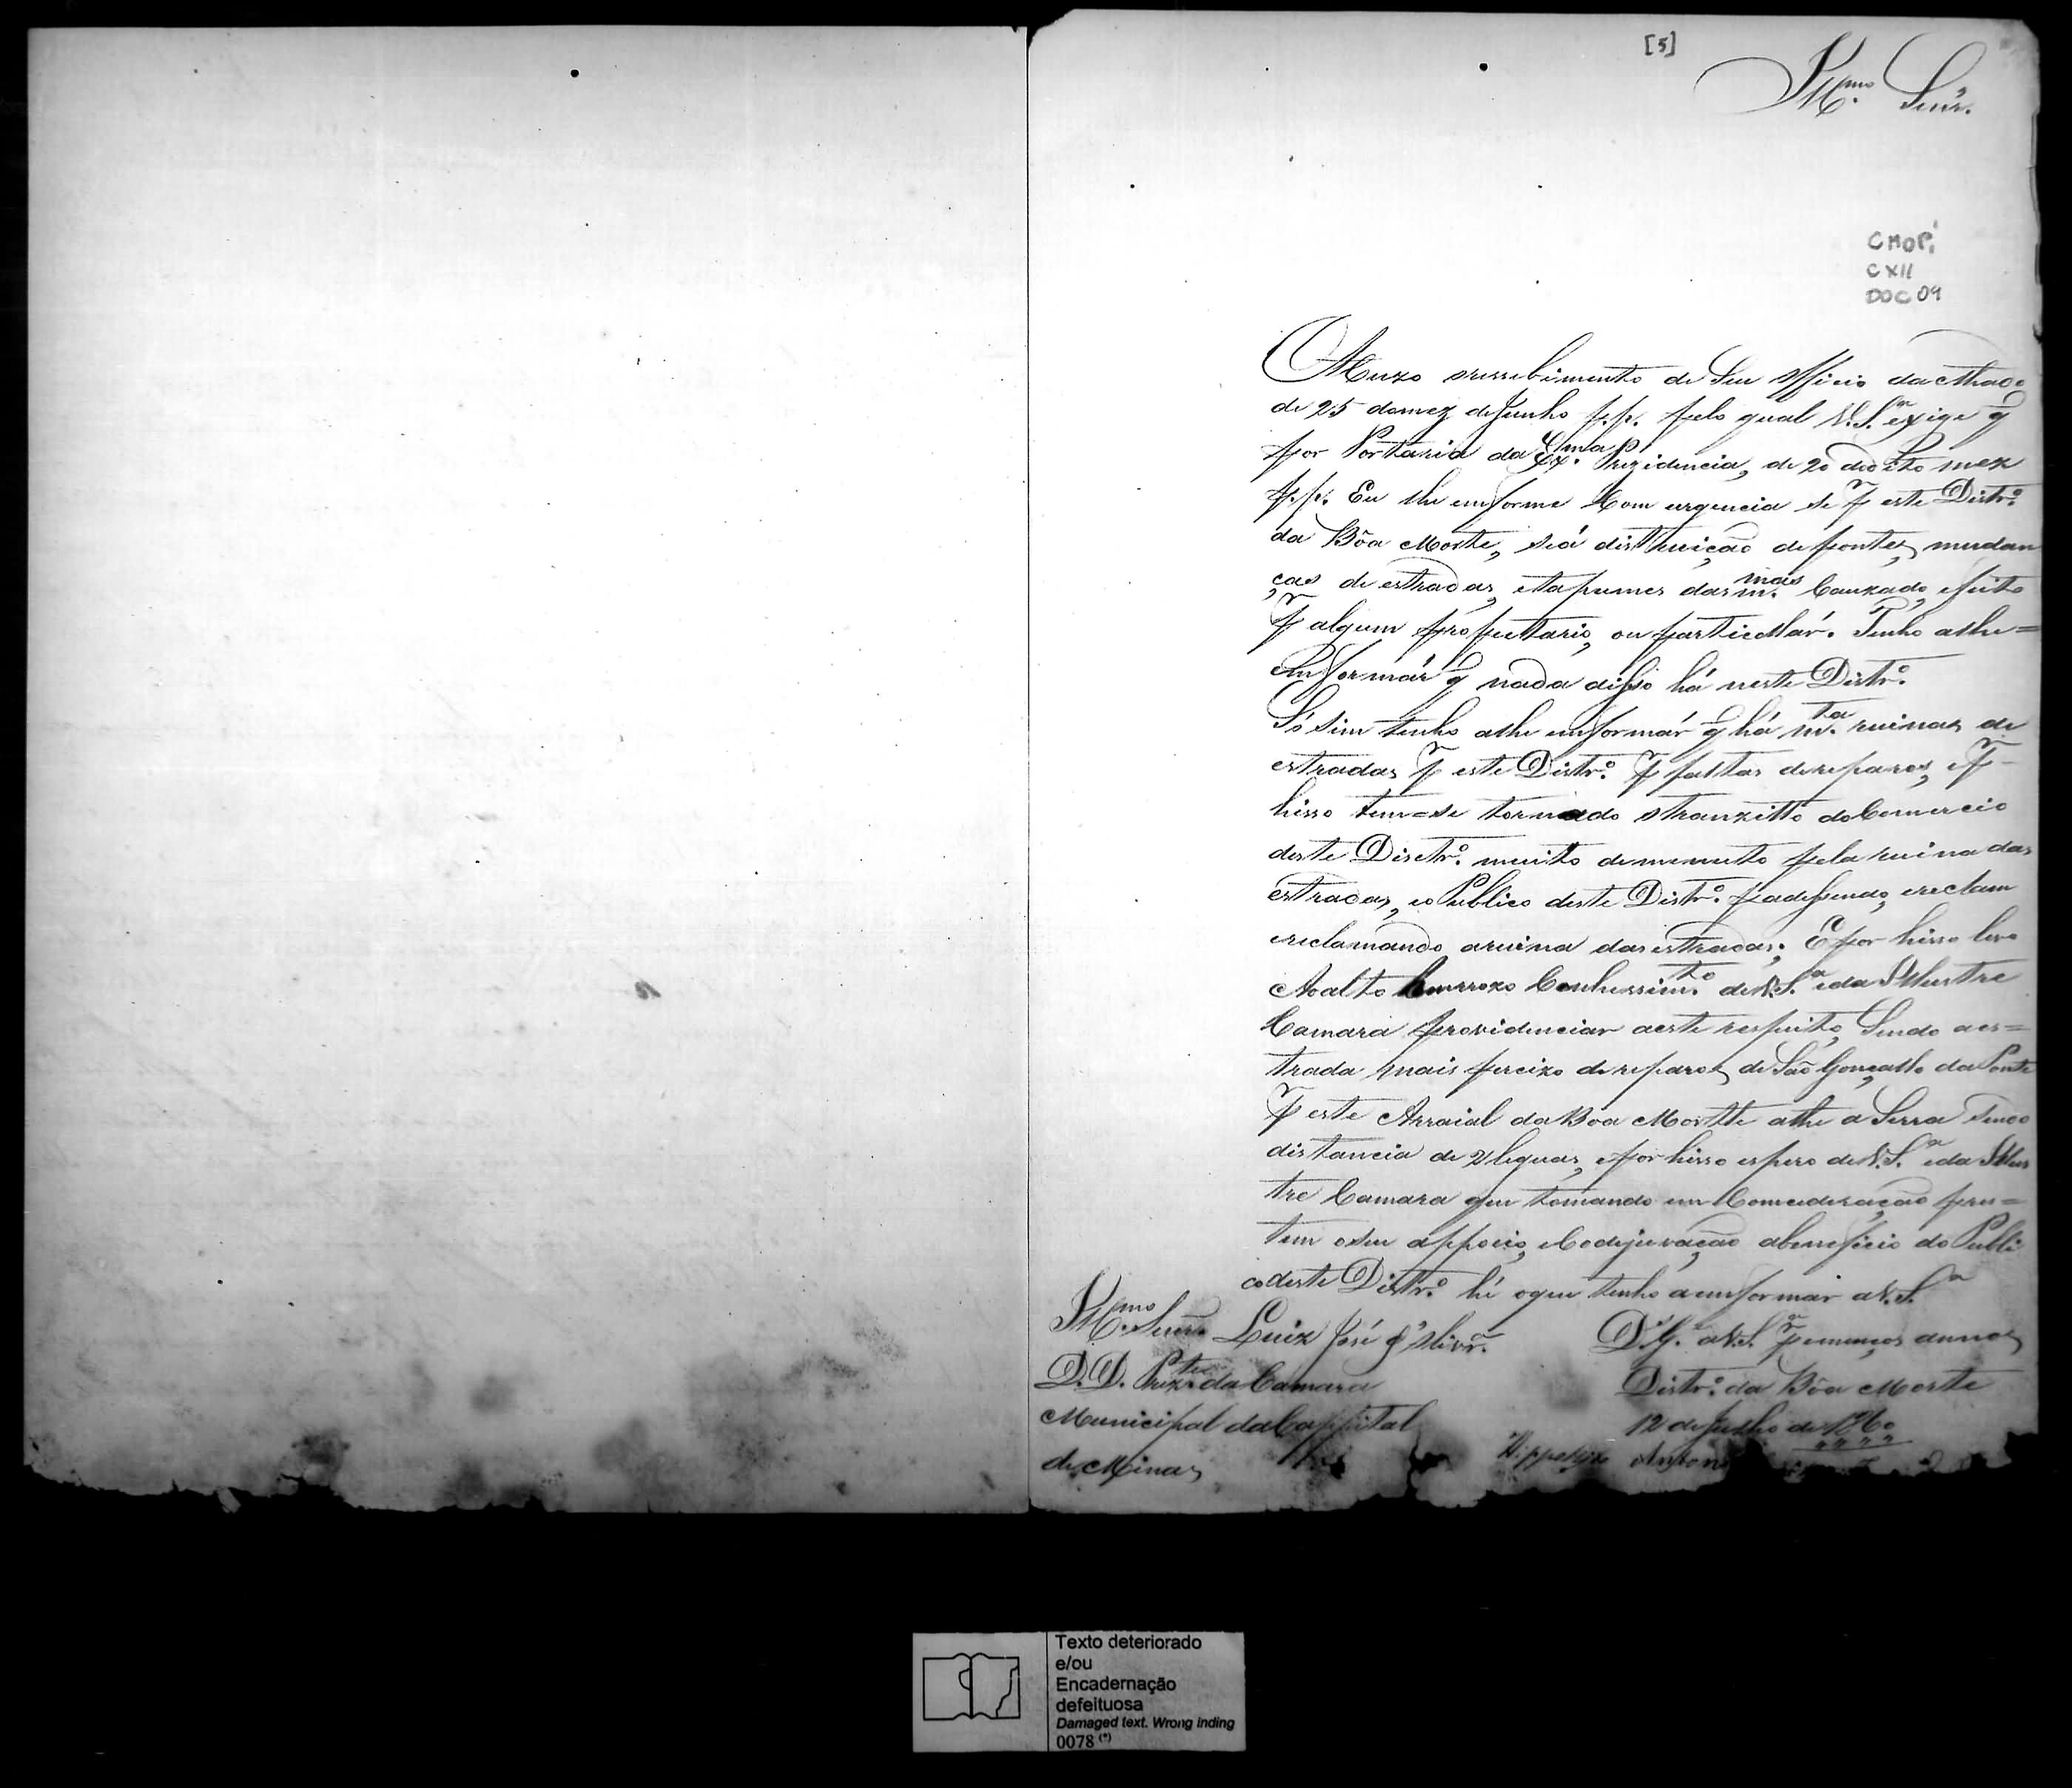 [5]
Ill.mo Senr.
CMOP.
CXII
DOC 09
Acuzo oressebimento de Seu Officio da
de 25 domez deJunho p.p. pelo qual V.S.a exige q̃
por Portaria da Ex.ma Prezidencia, de 20 do dito mez
p.p. Eu lhe emforme Com urgencia se pr este Distr.o
da Bôa Morte, se á distruição depontes, mudan
ças de estradas, etapumes das m.mas Cauzado, efeito
pr algum propietario, ou particullár. Tenho alhe=
emformár q̃ nada disso há neste Distr.o
Só sim tenho alhe emformár q̃ há m.ta ruinas de
estradas pr este Distr.o pr faltas dereparos, epr
hisso tem=se tornado otranzitto doComercio
deste Disctr.o muito pela ruina das
estradas, eo Publico deste Distr.o padessendo, ereclam
ereclamando aruina dasestradas; Epor hisso levo
Aoalto Conhessim.to deV.S.a eda Illustre
Camara providenciar aeste respeito, Sendo aes=
trada mais percizo dereparos, de São Gonçallo daPonte
pr este Arraial daBoa Mortte athe a Serra
distancia de 2 leguas, epor hisso espero deV.S.a eda Illus
tre Camara que tomando em Comcideração pres=
tem oseu appoio, eCodejuvação abenefício do Publi
co deste Distr.o hé oque tenho aemformar aV.S.a
Ill.mo Senr. Luiz José d'Olivr.a
D.G.e aV.S.a pr annos
D.D. Prez.te daCamara
Distr.o da Bôa Morte
Municipal daCappital
12 deJulho de 1860
de Minas
Anton
Texto deteriorado
e/ou
Encadernação
defeituosa
Damaged text. Wrong inding
0078 (*)